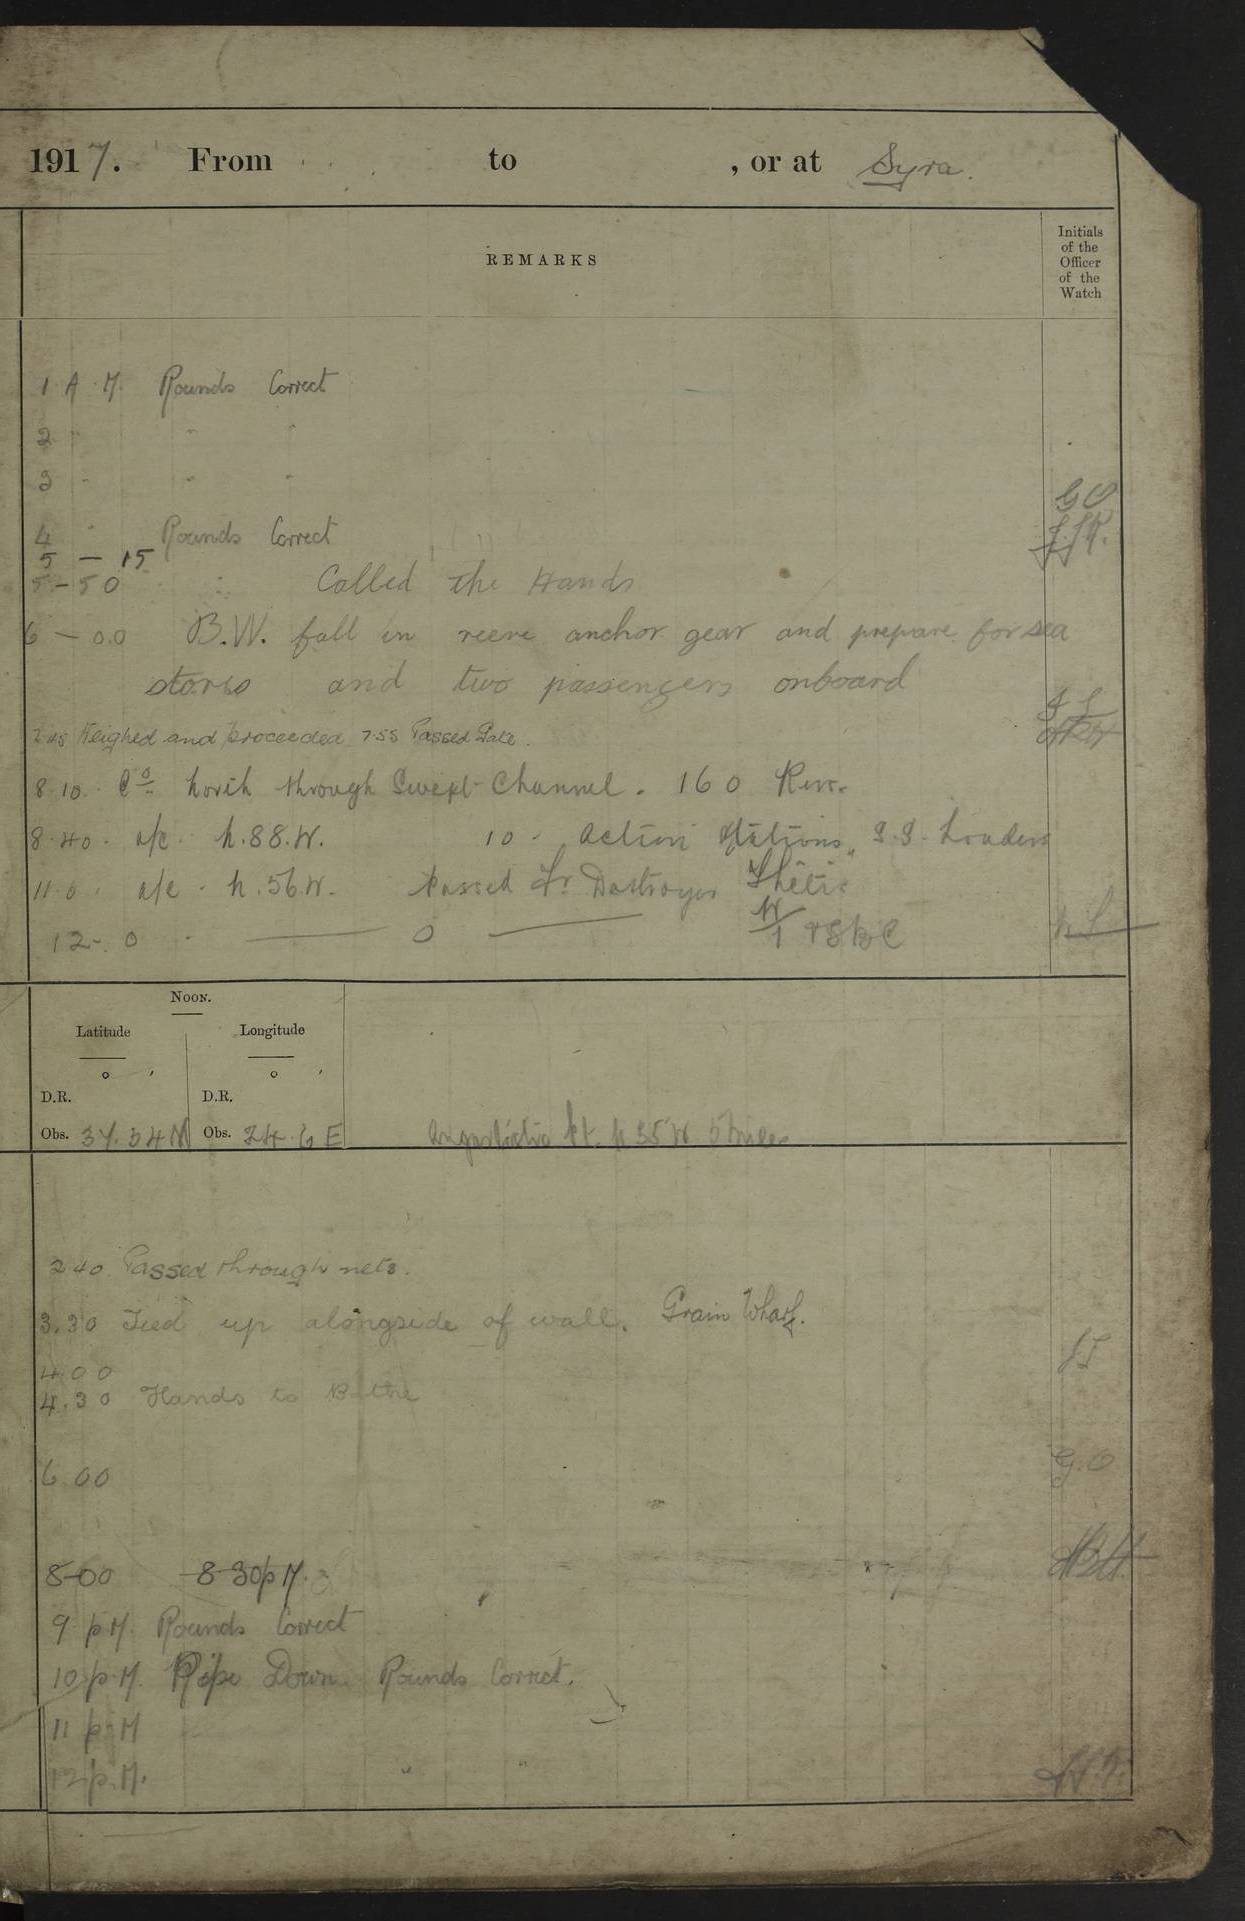 1917. From to , or at Syra.
REMARKS
Initials of the Officer of the Watch
1 A.M. Rounds Correct
2 " " "
3 " " "
G O
4 " Rounds Correct
5 – 15
5 – 50 Called the Hands
6 – 0.0 B.W. fall in reeve anchor gear and prepare for sea
stores and two passengers onboard
Weighed and proceeded 7.55 Passed Gate.
8.10. Co North through Swept Channel. 160 Revs.
8.40. a/c. N.88.W. 10 - Action Stations,
11.0. a/c. N.56.W. Passed Fr. Destroyer
12-.0 - — 0 —
Noon.
Latitude Longitude
° ′ ° ′
D.R. D.R.
Obs. 37.34 N Obs. 24.6 E
2 40 Passed through nets.
3.30 Tied up alongside of wall. Grain Wharf.
4.00
4.30 Hands to Bathe
6.00
G.O
8-00 8-30 p.M.
9 p.M. Rounds Correct
10 p.M. Pipe Down. Rounds Correct.
11 p.M
12 p.M. " "